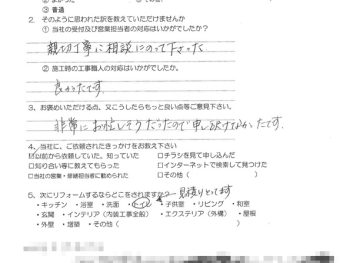 ③ 普通
2. そのように思われた訳を教えていただけませんか
① 当社の受付及び営業担当者の対応はいかがでしたか?
親切丁寧に相談にのって下さった
② 施工時の工事職人の対応はいかがでしたか。
良かったです。
3、お褒めいただける点、又こうしたらもっと良い点等ご意見下さい。
非常にお忙しそうだったので申し訳なかったです。
4、当社に、ご依頼されたきっかけをお教え下さい
☑以前から依頼していた、知っていた □チラシを見て申し込んだ
□知り合い等に教えてもらった □インターネットで検索して見つけた
□当社の営業・ □その他(
5、次にリフォームするならどこをされますか? 見積りとってます
・キッチン ・浴室 ・洗面 ・トイレ ・子供室 ・リビング ・和室
・玄関 ・インテリア(内装工事全般) ・エクステリア(外構) ・屋根
・外壁 ・増築 ・その他( )